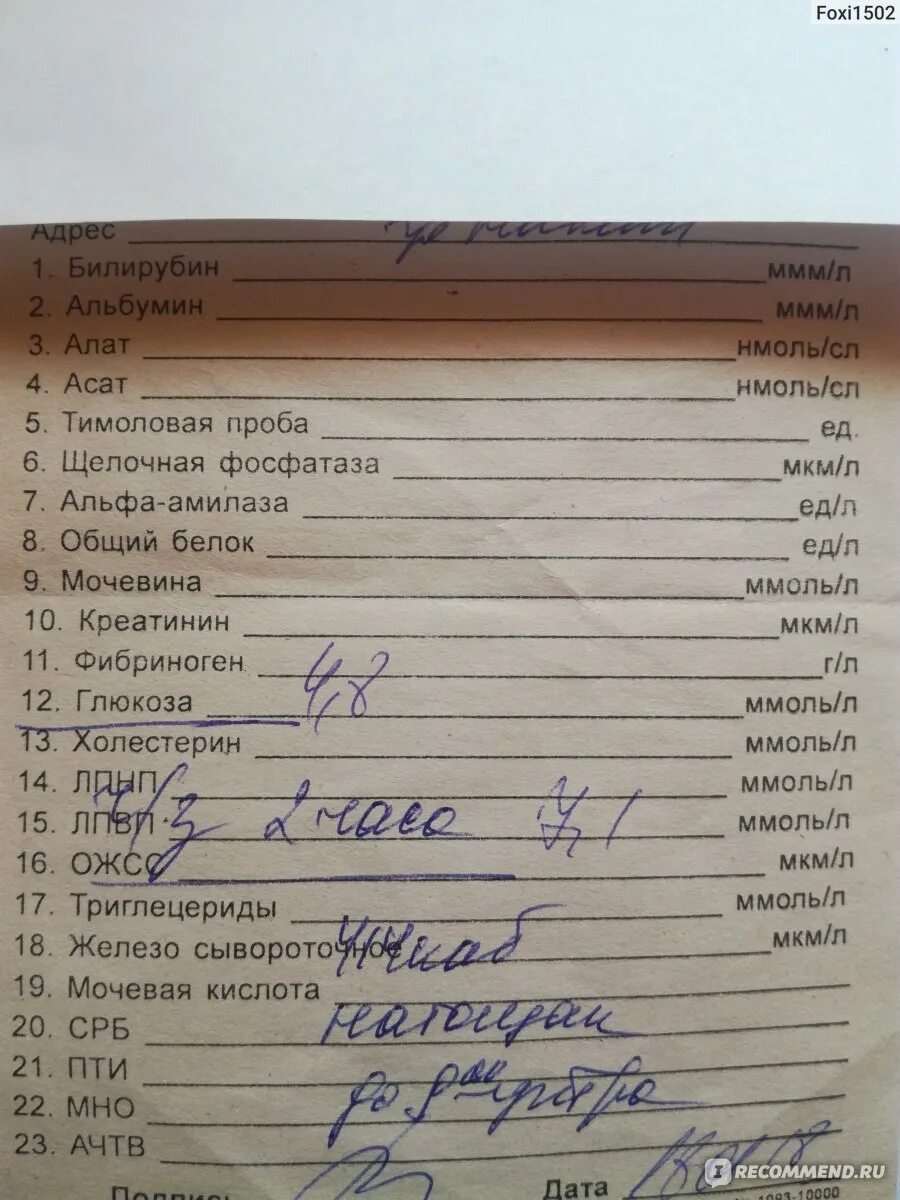 Foxi1502
Адрес
1. Билирубин ммм/л
2. Альбумин ммм/л
3. Алат нмоль/сл
4. Асат нмоль/сл
5. Тимоловая проба ед.
6. Щелочная фосфатаза мкм/л
7. Альфа-амилаза ед/л
8. Общий белок ед/л
9. Мочевина ммоль/л
10. Креатинин мкм/л
11. Фибриноген г/л
12. Глюкоза 4,8 ммоль/л
13. Холестерин ммоль/л
14. ЛПНП ммоль/л
ч/з 2 часа 7,1
15. ЛПВП ммоль/л
16. ОЖСС мкм/л
17. Триглецериды ммоль/л
18. Железо сывороточное мкм/л
19. Мочевая кислота
натощак
20. СРБ
21. ПТИ
до 9 00 утра
22. МНО
23. АЧТВ
Подпись Дата
IRECOMMEND.RU